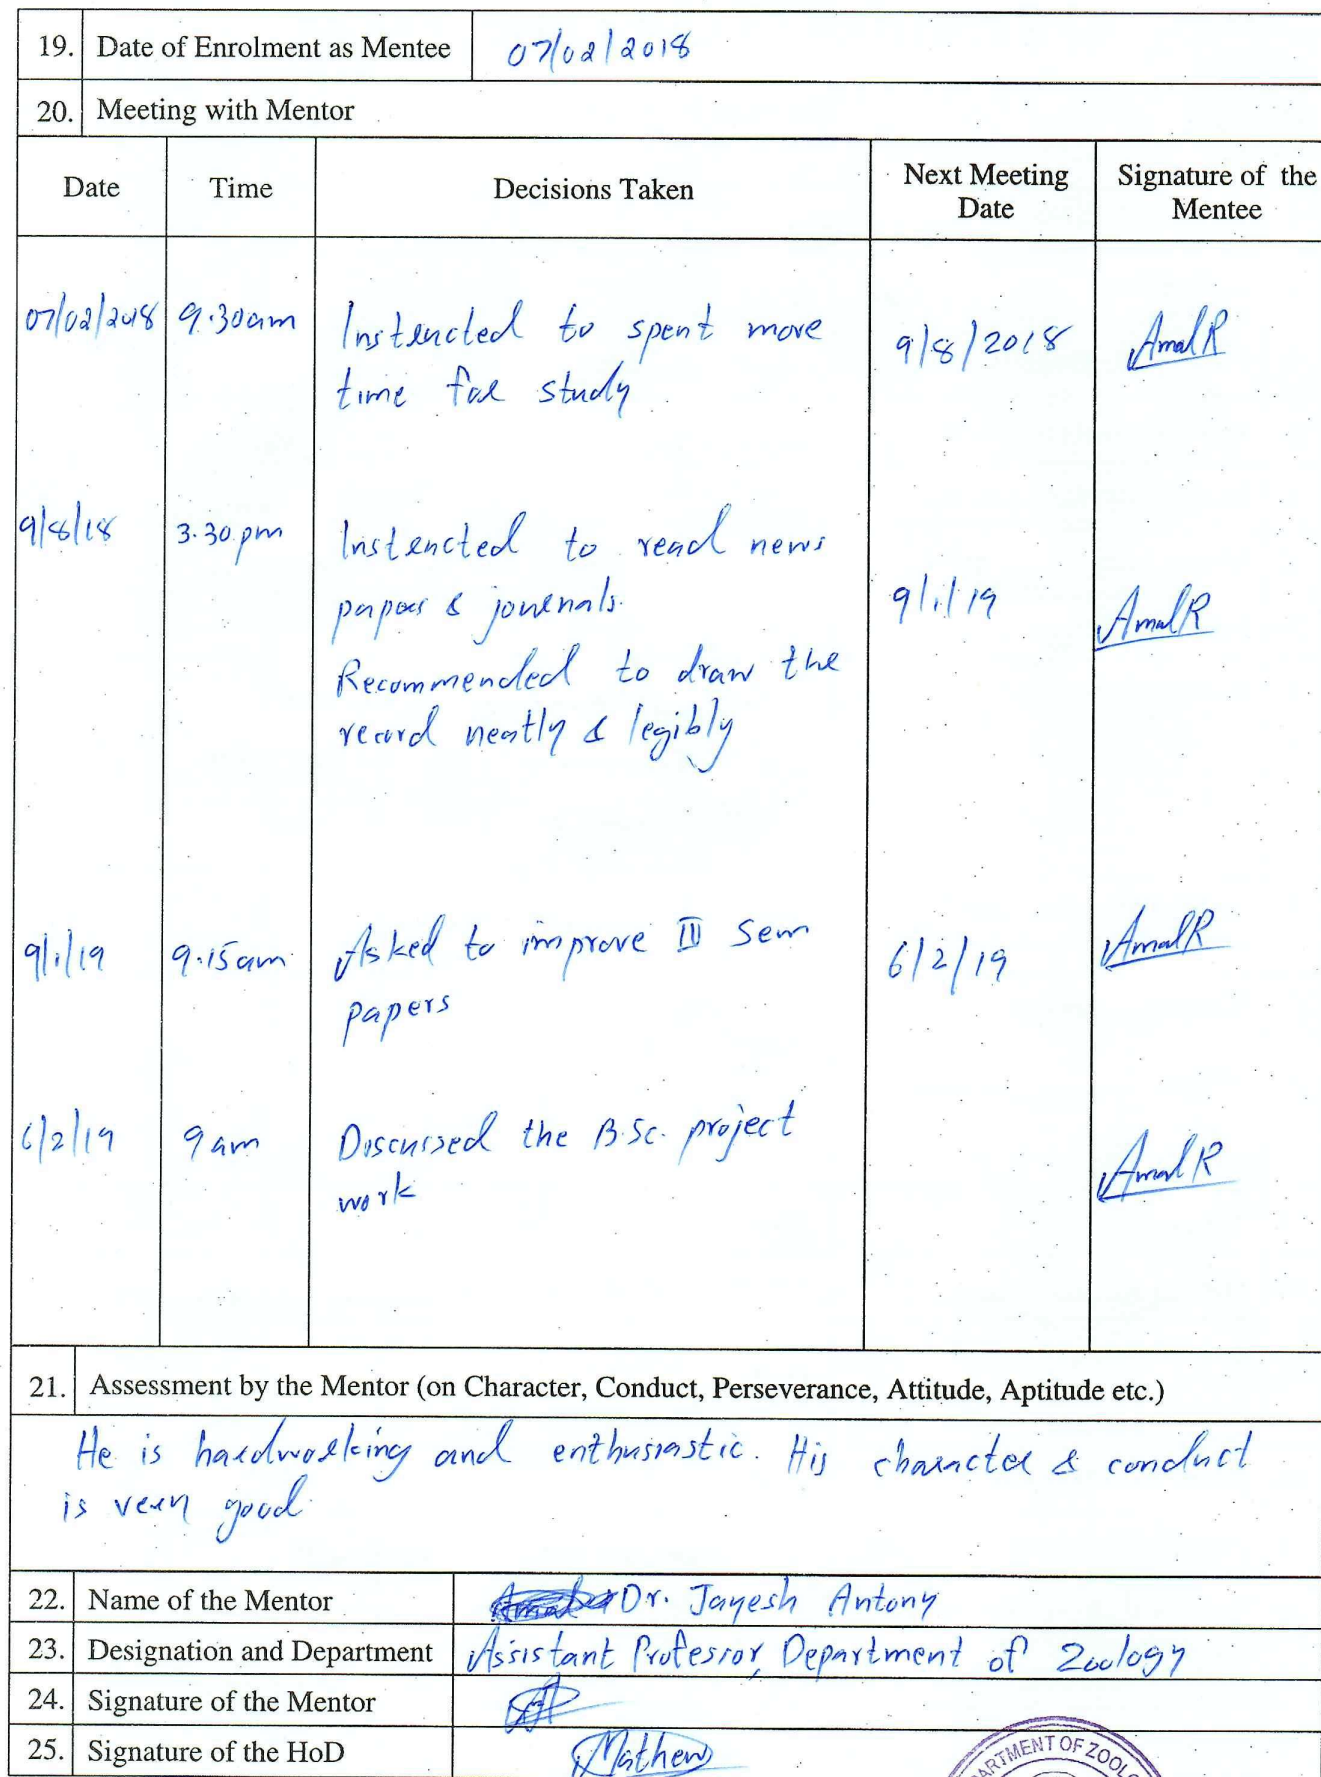 19. Date of Enrolment as Mentee 07/02/2018
20. Meeting with Mentor
Date Time Decisions Taken Next Meeting Date Signature of the Mentee
07/02/2018 9.30am Instructed to spent more 9/8/2018 Amal R
time for study
9/8/18 3.30 pm Instructed to read news
papers & journals. 9/1/19 Amal R
Recommended to draw the
record neatly & legibly
9/1/19 9.15am Asked to improve Sem 6/2/19 Amal R
papers
6/2/19 9am Discussed the B.Sc. project Amal R
work
21. Assessment by the Mentor (on Character, Conduct, Perseverance, Attitude, Aptitude etc.)
He is hardworking and enthusiastic. His character & conduct
is very good.
22. Name of the Mentor Dr. Jayesh Antony
23. Designation and Department Assistant Professor, Department of Zoology
24. Signature of the Mentor
25. Signature of the HoD Mathew
OF